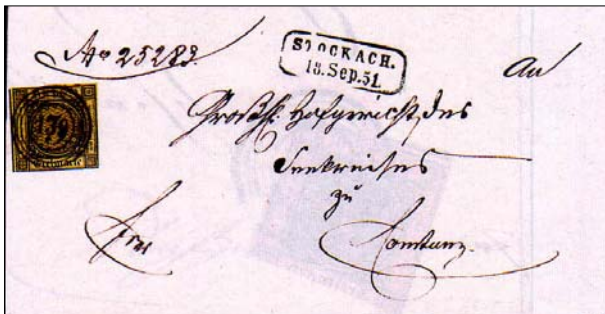 No 25283.
STOCKACH.
13. Sep. 51.
An
Großh. Hofgericht des
Seekreises
zu
Constanz.